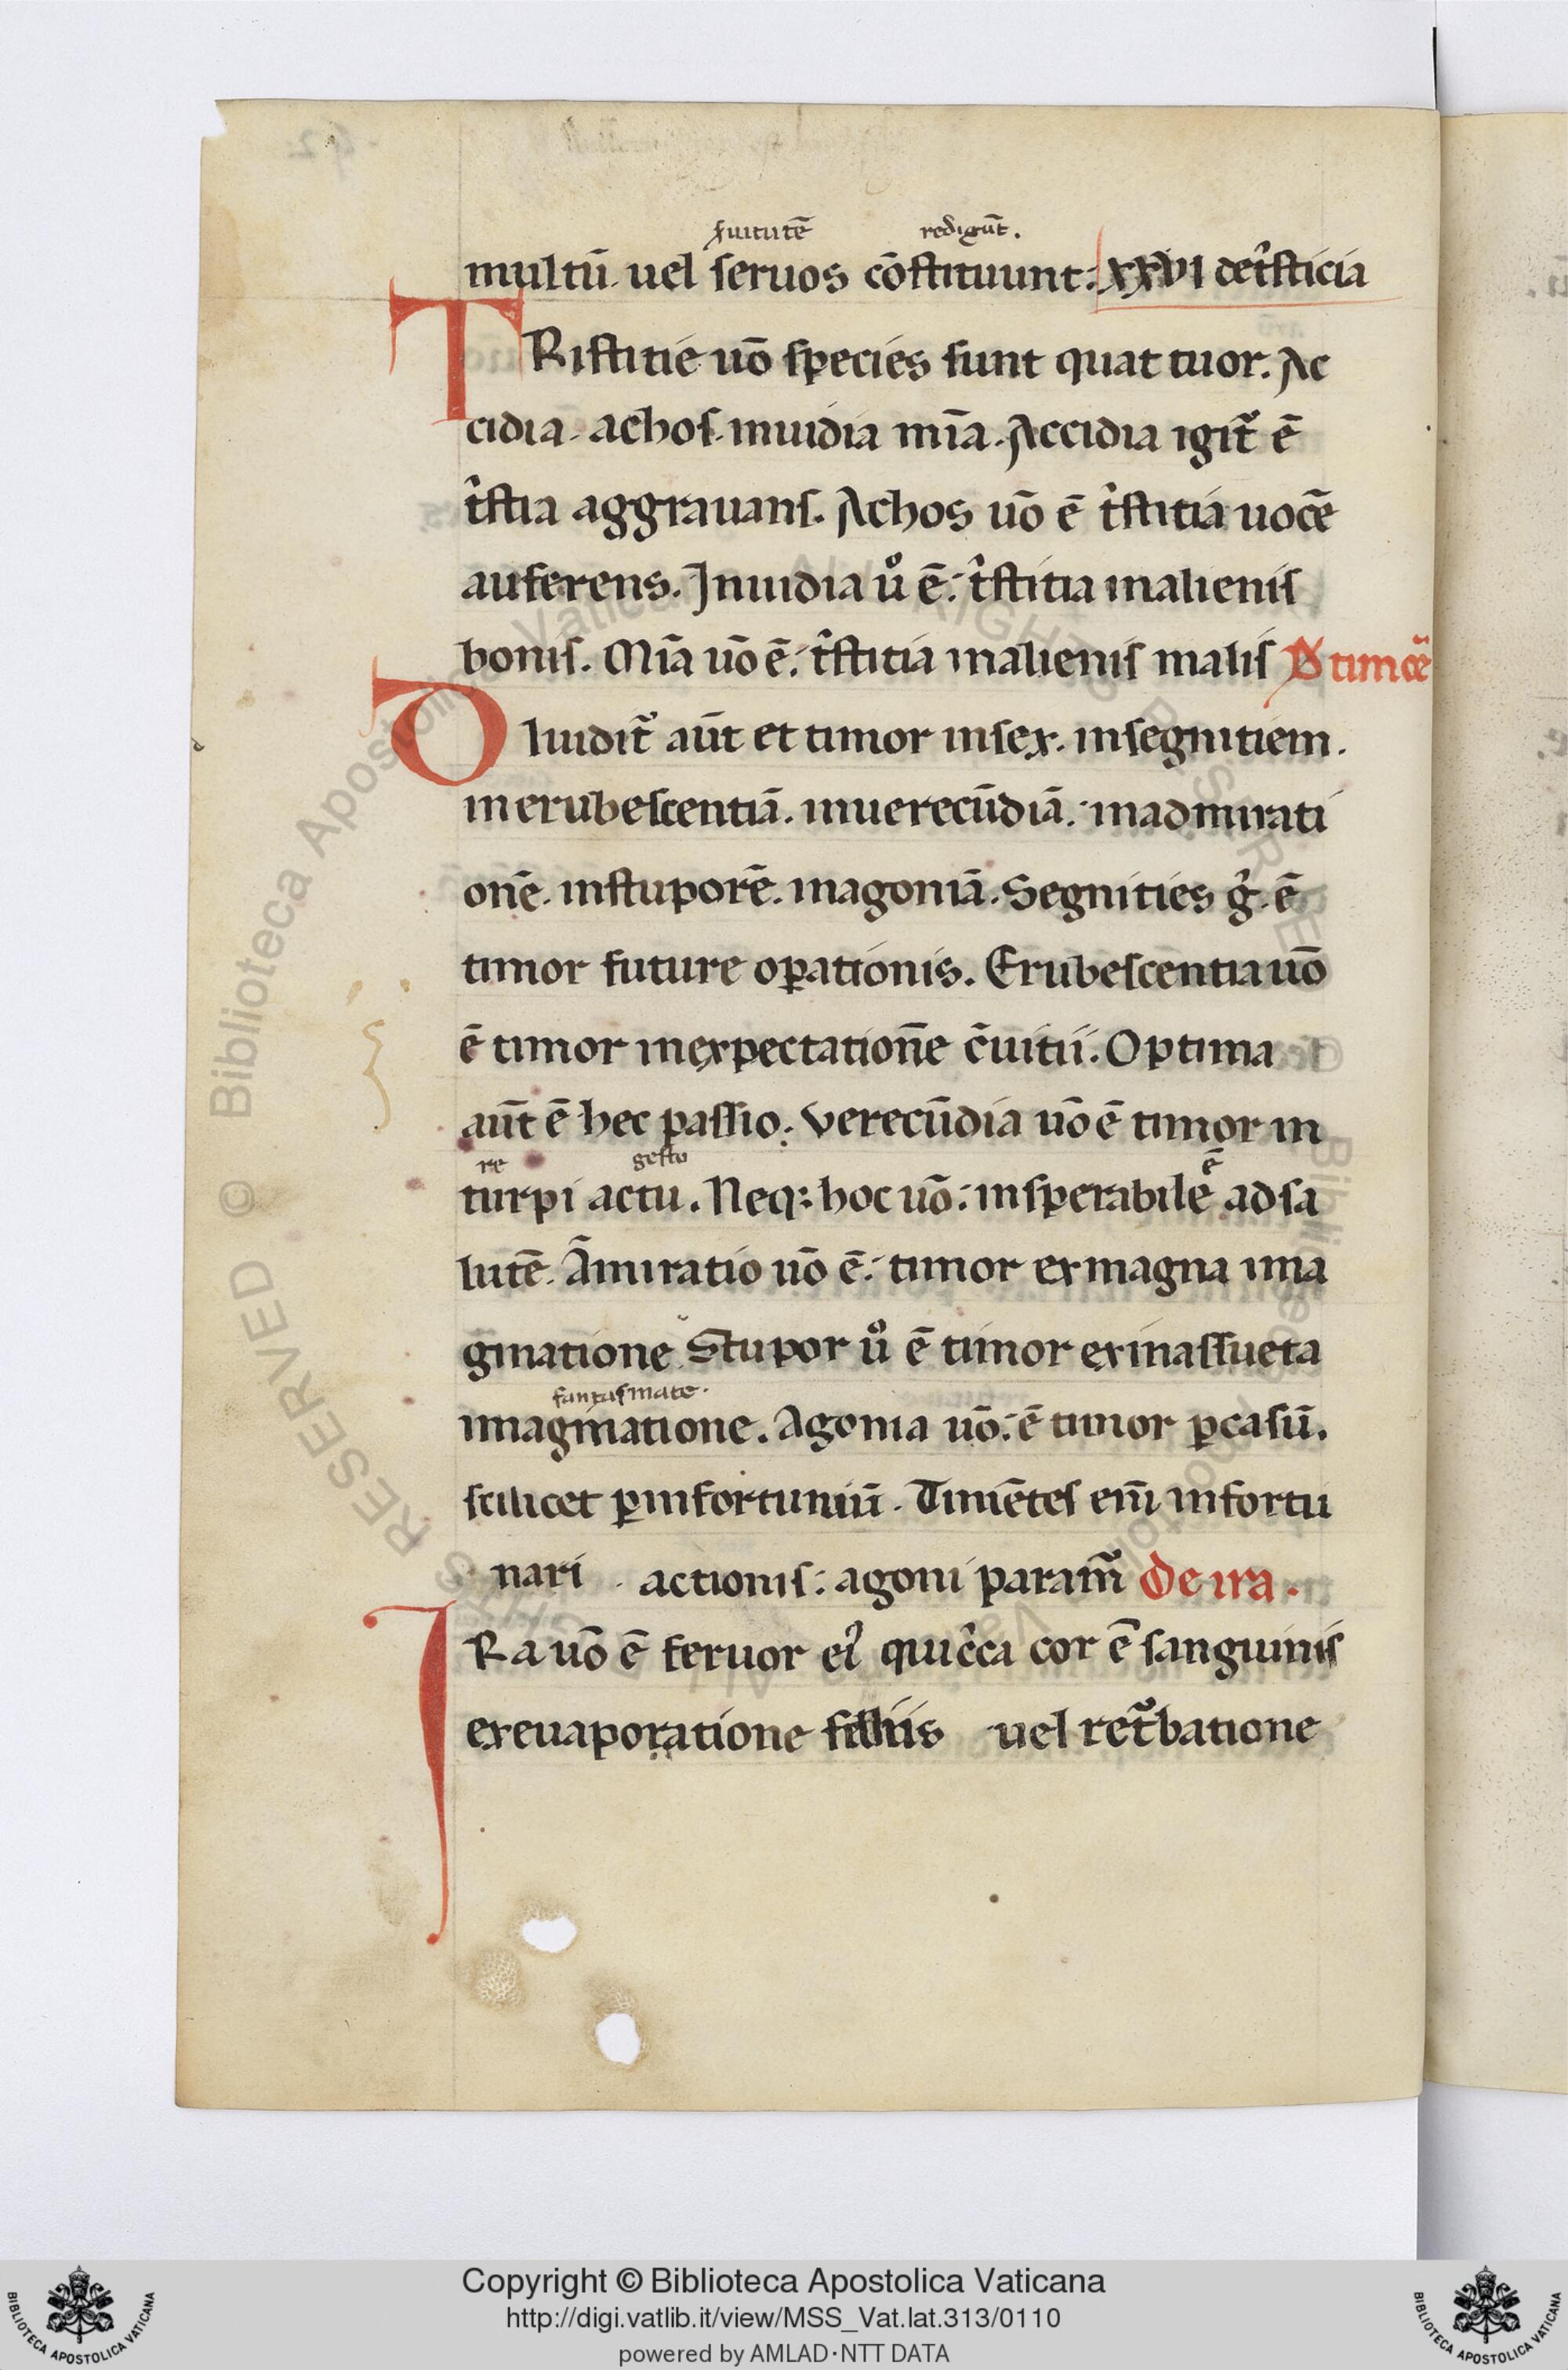 ẜuitutē redigūt.
multū. uel ſeruos cōſtituunt: XXVI de tͥſticia
TRiſtitie uō ſpecies ſunt quattuor. Ac
cidia. achoſ. inuidia mīa. Accidia igit᷑ ē
tͥſtia aggrauanſ. Achos uō ē tͥſtitia uocē
auferens. Inuidia uͦ ē. tͥſtitia in alieniſ
boniſ. Mīa uō ē. tͥſtitia in alieniſ maliſ
Diuidit᷑ aūt et timor in ſex. in ſegnitiem.
in erubeſcentiā. in uerecūdiā. in admirati
onē. in ſtuporē. in agoniā. Segnities gͦ. ē
timor future oꝑationis. Erubeſcentia uō
ē timor in expectatione c̄uitii. Optima
aūt ē hec paſſio. Verecūdia uō ē timor in
re geſto ē
turpi actu. Neq; hoc uō. inſperabile ad ſa
lutē. Āmiratio uō ē. timor ex magna ima
ginatione. Stupor uͦ ē timor ex inaſſueta
fantaſmate.
imaginatione. Agonia uō. ē timor ꝑ caſū.
ſcilicet ꝑ infortuniū. Timēteſ eni᷑ infortu
nari actioniſ: agoni param᷑ De ira.
IRa uō ē feruor eiꝰ qui cͥca cor ē ſanguiniſ
ex euaporatione fellis uel ret᷑batione
Copyright © Biblioteca Apostolica Vaticana
http://digi.vatlib.it/view/MSS_Vat.lat.313/0110
powered by AMLAD·NTT DATA
BIBLIOTECA APOSTOLICA VATICANA
BIBLIOTECA APOSTOLICA VATICANA